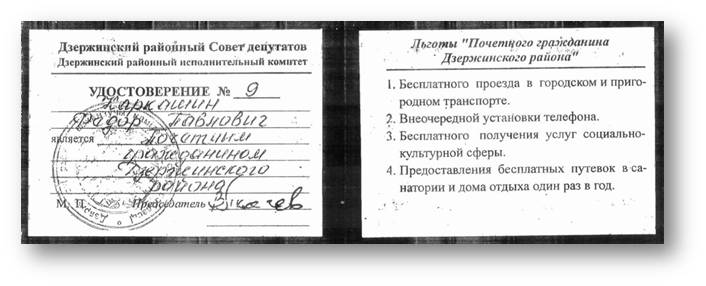 Дзержинский районный Совет депутатов
Дзержинский районный исполнительный комитет
УДОСТОВЕРЕНИЕ № 9
Каркашин
Федор Павлович
является Почетным
гражданином
Дзержинского
района
М. П. Председатель
Льготы "Почетного гражданина
Дзержинского района"
1. Бесплатного проезда в городском и приго-
родном транспорте.
2. Внеочередной установки телефона.
3. Бесплатного получения услуг социально-
культурной сферы.
4. Предоставления бесплатных путевок в са-
натории и дома отдыха один раз в год.